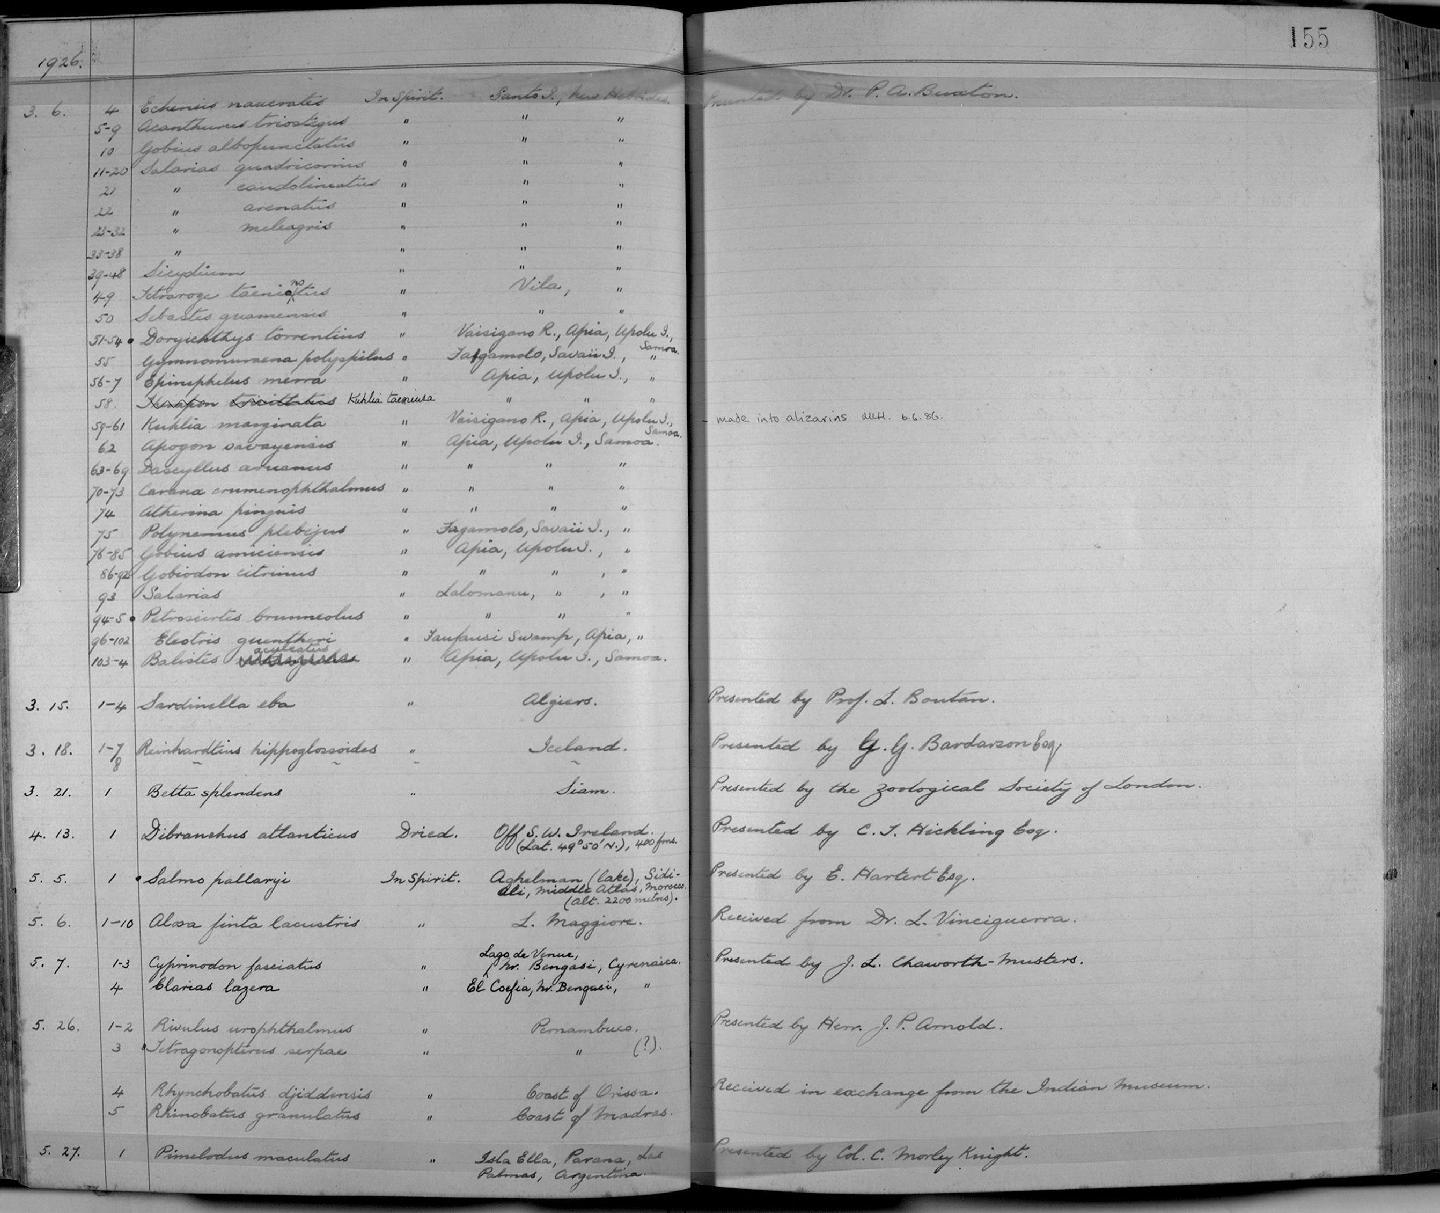 155
1926.
3. 6. 4 Echeneis naucrates In Spirit. Santo I., New Hebrides. Presented by Dr. P. A. Buxton.
5-9 Acanthurus triostegus " " "
10 Gobius albopunctatus " " "
11-20 Salarias quadricornis " " "
21 " caudolineatus " " "
22 " arenatus " " "
23-32 " meleagris " " "
33-38 " " " "
39-48 Sicydium " " "
49 Tetraroge taenianotus " Vila, "
50 Sebastes guamensis " " "
51-54 • Doryichthys torrentius " Vaisigano R., Apia, Upolu I., Samoa.
55 Gymnomuraena polyspilus " Fagamolo, Savaii I., "
56-7 Epinephelus merra " Apia, Upolu I., "
58. Kuhlia taeniura " " " "
59-61 Kuhlia marginata " Vaisigano R., Apia, Upolu I., Samoa. - made into alizarins 6.6.86.
62 Apogon savayensis " Apia, Upolu I., Samoa.
63-69 Dascyllus aruanus " " " "
70-73 Caranx crumenophthalmus " " " "
74 Atherina pinguis " " " "
75 Polynemus plebejus " Fagamolo, Savaii I., "
76-85 Gobius " Apia, Upolu I., "
86-92 Gobiodon citrinus " " " , "
93 Salarias " Lalomanu, " , "
94-5 • Petroscirtes brunneolus " " " "
96-102 Eleotris guentheri " Swamp, Apia, "
103-4 Balistes aculeatus " Apia, Upolu I., Samoa.
3. 15. 1-4 Sardinella eba " Algiers. Presented by Prof. L. Boutan.
3. 18. 1-7 Reinhardtius hippoglossoides " Iceland. Presented by G. G. Bardarson Esq.
8 " " " "
3. 21. 1 Betta splendens " Siam. Presented by the Zoological Society of London.
4. 13. 1 Dibranchus atlanticus Dried. Off S. W. Ireland. Presented by C. F. Hickling Esq.
(Lat. 49° 50' N.), 400 fms.
5. 5. 1 • Salmo pallaryi In Spirit. Aghelman (lake), Sidi- Presented by E. Hartert Esq.
Ali, Middle Atlas, Morocco.
(alt. 2200 metres).
5. 6. 1-10 Alosa finta lacustris " L. Maggiore. Received from Dr. L. Vinciguerra.
5. 7. 1-3 Cyprinodon fasciatus " Lago de Venue, nr. Bengasi, Cyrenaica. Presented by J. L. Chaworth-Musters.
4 Clarias lazera " El Coefia, nr. Bengasi, "
5. 26. 1-2 Rivulus urophthalmus " Pernambuco. Presented by Herr. J. P. Arnold.
3 Tetragonopterus serpae " " (?).
4 Rhynchobatus djiddensis " Coast of Orissa. Received in exchange from the Indian Museum.
5 Rhinobatus granulatus " Coast of Madras.
5. 27. 1 Pimelodus maculatus " Isla Ella, Parana, Las Presented by Col. C. Morley Knight.
Palmas, Argentina.